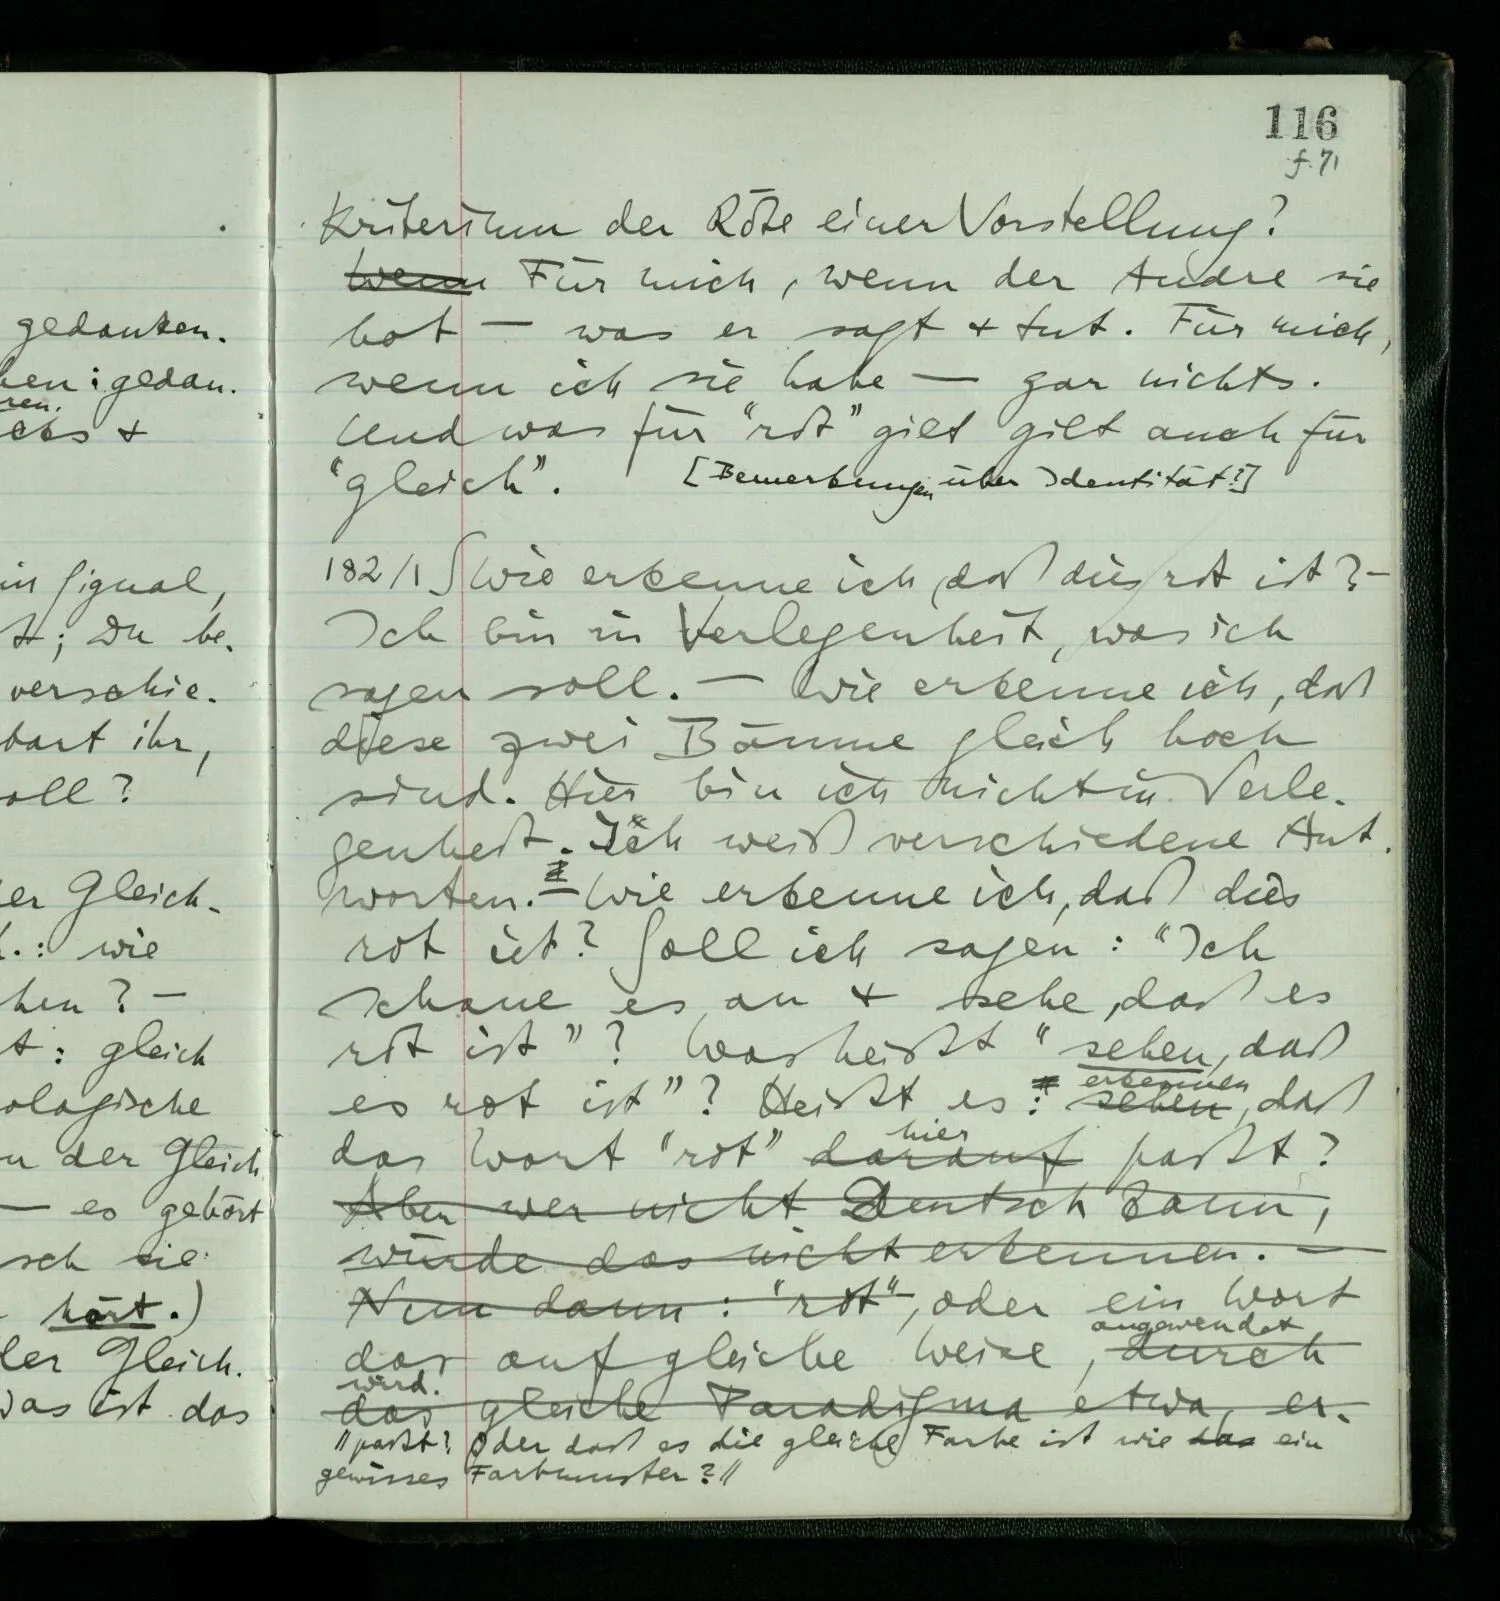 gedanken.
ben: gedan-
ren.
&
in Signal,
; Du be-
verschie-
bart ihr,
soll?
er Gleich-
.: wie
hen? —
t: gleich
ologische
n der Gleich
— es gehört
sch sie
hört.)
der Gleich-
Was ist das
116
f. 71
Kriterium der Röte einer Vorstellung?
Wenn Für mich, wenn der Andre sie
hat — was er sagt & tut. Für mich,
wenn ich sie habe — gar nichts.
Und was für "rot" gilt gilt auch für
"gleich". [Bemerkungen über Identität?]
182/1 ∫ Wie erkenne ich, daß dies rot ist? —
Ich bin in Verlegenheit, was ich
sagen soll. — Wie erkenne ich, daß
diese zwei Bäume gleich hoch
sind. Hier bin ich nicht in Verle-
genheit. Ich weiß verschiedene Ant-
worten. — Wie erkenne ich, daß dies
rot ist? Soll ich sagen: "Ich
schaue es an & sehe, daß es
rot ist"? Was heißt "sehen, daß
erkennen
es rot ist"? Heißt es: sehen, daß
hier
das Wort "rot" darauf paßt?
Aber wer nicht Deutsch kann,
würde das nicht erkennen. —
Nun dann: "rot", oder ein Wort
angewendet
das auf gleiche Weise, durch
wird.
das gleiche Paradigma etwa, er-
"paßt? Oder daß es die gleiche Farbe ist wie das ein
gewisses Farbmuster?"